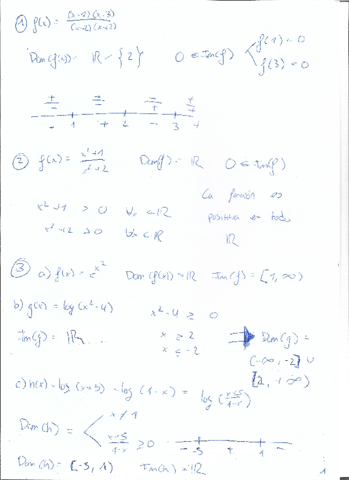 ① f(x) = (x-1)(x-3) / (x-2)(x+2)
Dom(f(x)) = ℝ - {2} 0 ∈ Im(f) f(1) = 0
f(3) = 0
- 1 + 2 - 3 +
② f(x) = x²+1 / x²+2 Dom(f) = ℝ 0 ∈ Im(f)
x²+1 > 0 ∀x ∈ ℝ
x²+2 > 0 ∀x ∈ ℝ
La función es
positiva en todo
ℝ
③ a) f(x) = e^x² Dom(f(x)) = ℝ Im(f) = [1, ∞)
b) g(x) = log(x²-4) x²-4 ≥ 0
Im(g) = ℝ x ≥ 2 ⇒ Dom(g) =
x ≤ -2 (-∞, -2] ∪
[2, +∞)
c) h(x) = log(x+5) - log(1-x) = log(x+5 / 1-x)
Dom(h) = x ≠ 1
x+5 / 1-x ≥ 0 - -5 + 1 -
Dom(h) = [-5, 1) Im(h) = ℝ
1